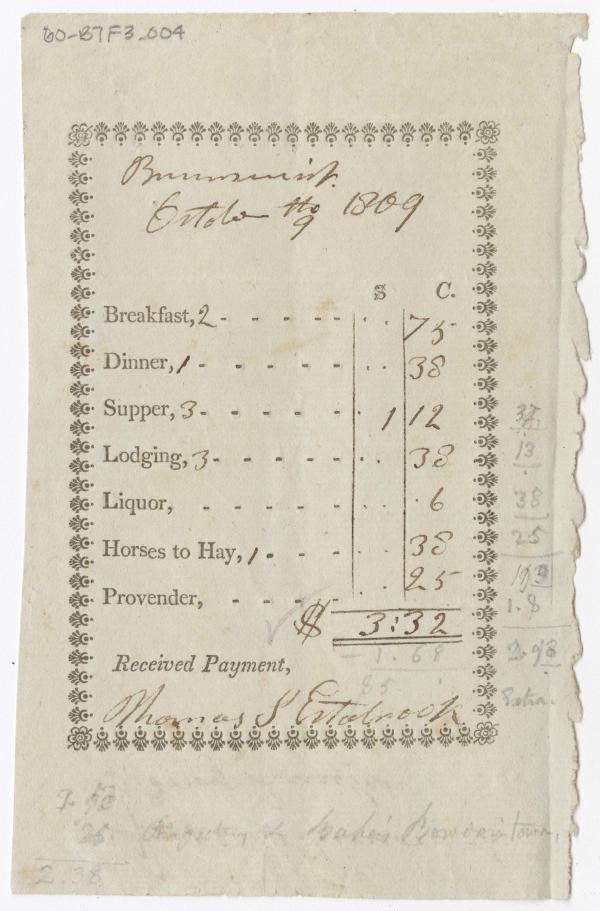 60-B7F3_004
Brunswick
October 9th 1809
$ C.
Breakfast, 2 - - - - - - . . 75
Dinner, 1 - - - - - . . 38
Supper, 3 - - - - - . 1 12
Lodging, 3 - - - - - . . 38
Liquor, - - - - - - . . 6
Horses to Hay, 1 - - - - . . 38
Provender, - - - - - . . 25
$ 3:32
1.68
85
Received Payment,
Thomas S Estabrook
13
38
25
1.8
Extra.
25
2.38
Bowdoin